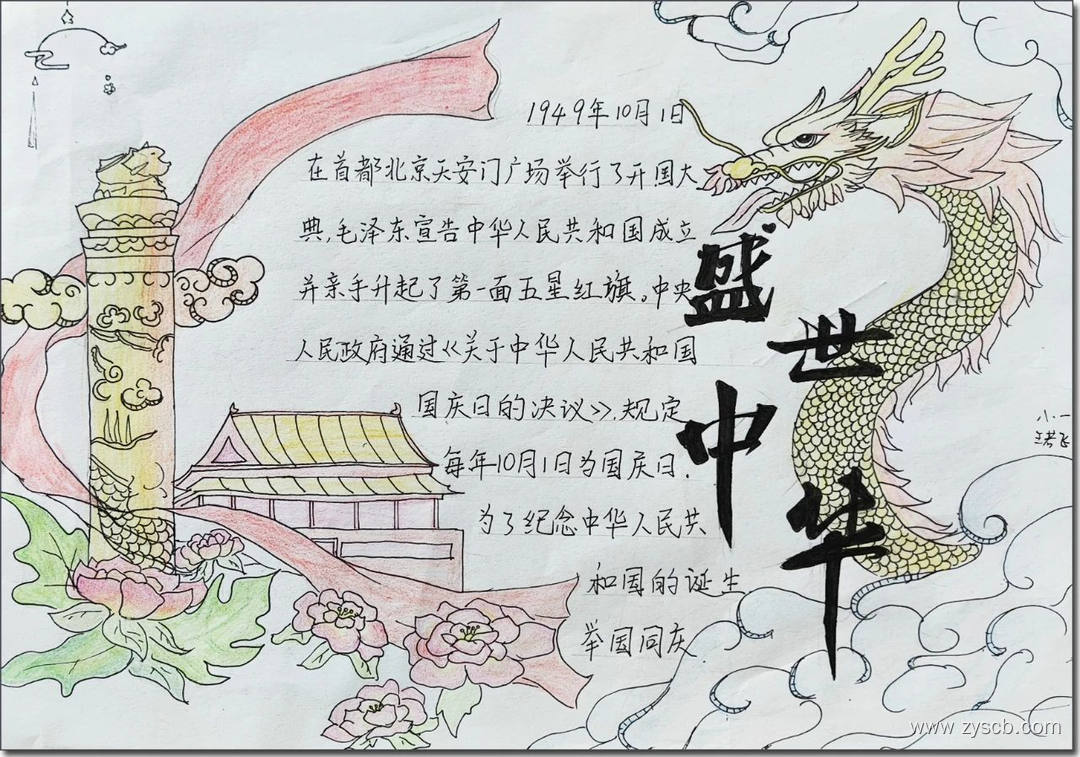 1949年10月1日
在首都北京天安门广场举行了开国大
典,毛泽东宣告中华人民共和国成立
并亲手升起了第一面五星红旗。中央
人民政府通过《关于中华人民共和国
国庆日的决议》,规定
每年10月1日为国庆日.
为了纪念中华人民共
和国的诞生
举国同庆
盛世
中华
小一
www.zyscb.com